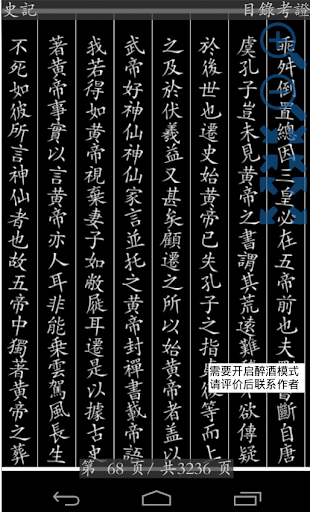 史記
目錄考證
乖舛倒置總因三皇必在五帝前也夫書斷自唐
虞孔子豈未見黃帝之書謂其荒遠難不欲傳疑
於後世也遷史始黃帝已失孔子之指後等而上
之及於伏羲益又甚矣顧遷之所以始黃帝者蓋以
武帝好神仙神仙家言並托之黃帝封禪書載帝語
我若得如黃帝視棄妻子如敝屣耳遷是以據古史
著黃帝事實以言黃帝亦人耳非能乘雲駕風長生
不死如彼所言神仙者也故五帝中獨著黃帝之葬
需要开启醉酒模式
请评价后联系作者
第 68 页/共3236 页